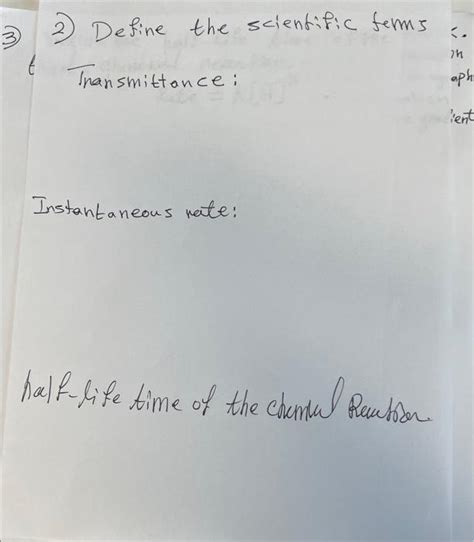 2) Define the scientific terms
Transmittance:
Instantaneous rate:
half-life time of the chemical Reaction.
3)
t
aph
ient